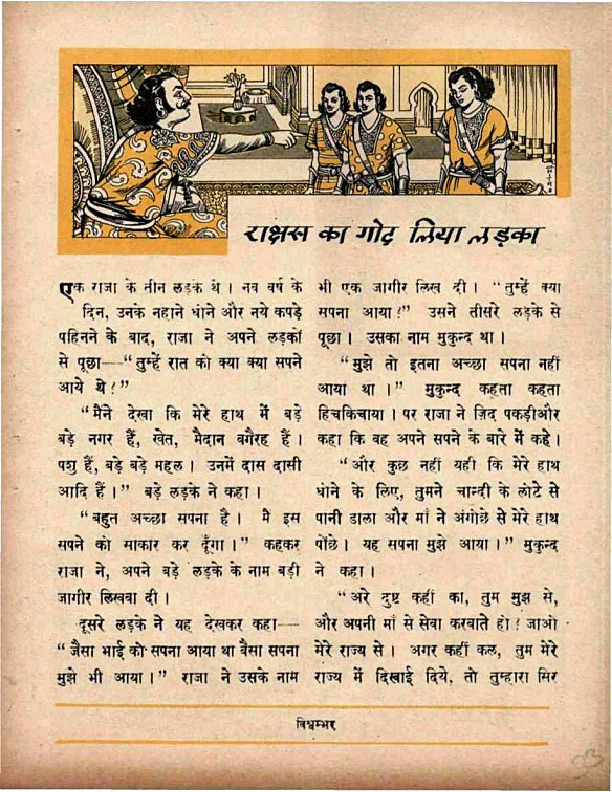 राक्षस का गोद लिया लड़का
एक राजा के तीन लड़के थे । नव वर्ष के
दिन, उनके नहाने धोने और नये कपड़े
पहिनने के बाद, राजा ने अपने लड़कों
से पूछा—“तुम्हें रात को क्या क्या सपने
आये थे?”
“मैंने देखा कि मेरे हाथ में बड़े
बड़े नगर हैं, खेत, मैदान वगैरह हैं ।
पशु हैं, बड़े बड़े महल । उनमें दास दासी
आदि हैं ।” बड़े लड़के ने कहा ।
“बहुत अच्छा सपना है । मै इस
सपने को साकार कर दूँगा ।” कहकर
राजा ने, अपने बड़े लड़के के नाम बड़ी
जागीर लिखवा दी ।
दूसरे लड़के ने यह देखकर कहा—
“जैसा भाई को सपना आया था वैसा सपना
मुझे भी आया ।” राजा ने उसके नाम
भी एक जागीर लिख दी । “तुम्हें क्या
सपना आया?” उसने तीसरे लड़के से
पूछा । उसका नाम मुकुन्द था ।
“मुझे तो इतना अच्छा सपना नहीं
आया था ।” मुकुन्द कहता कहता
हिचकिचाया । पर राजा ने ज़िद पकड़ीऔर
कहा कि वह अपने सपने के बारे में कहे ।
“और कुछ नहीं यही कि मेरे हाथ
धोने के लिए, तुमने चान्दी के लोटे से
पानी डाला और माँ ने अंगोछे से मेरे हाथ
पोंछे । यह सपना मुझे आया ।” मुकुन्द
ने कहा ।
“अरे दुष्ट कहीं का, तुम मुझ से,
और अपनी माँ से सेवा करवाते हो? जाओ
मेरे राज्य से । अगर कहीं कल, तुम मेरे
राज्य में दिखाई दिये, तो तुम्हारा सिर
विश्वम्भर